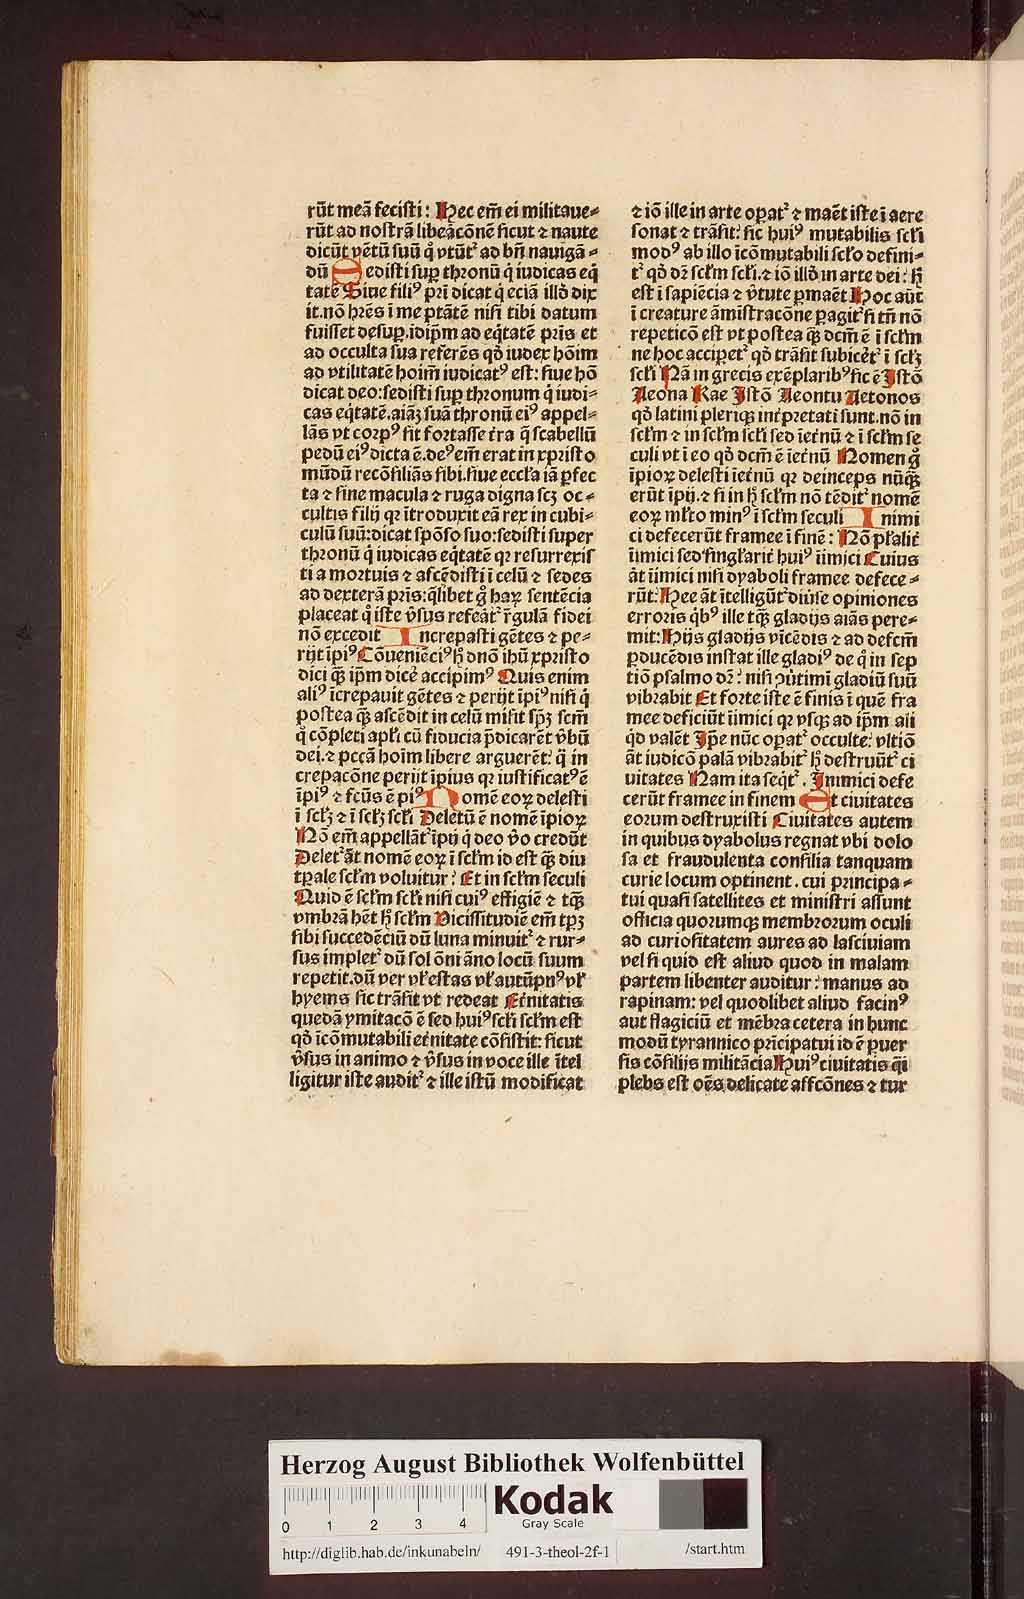 rūt meā fecisti: Hec em̄ ei militaue⸗
rūt ad nostrā libeꝛacōnē sicut ⁊ naute
dicūt vētū suū q̇ vtūt᷑ ad bn̄ nauigā⸗
dū Sedisti suꝑ thronū q̇ iudicas eq̄
tatē Siue fili⁹ pr̄i dicat q̇ eciā illō dix
it.nō hr̄es ī me ptātē nisi tibi datum
fuisset desuꝑ.idip̄m ad eq̄tatē pr̄is et
ad occulta sua referēs qd̄ iudex hōim
ad vtilitatē hoim̄ iudicat⁹ est: siue hō
dicat deo:sedisti suꝑ thronum q̇ iudi⸗
cas eq̄tatē.aiāꝫ suā thronū ei⁹ appel⸗
lās vt corp⁹ sit fortasse t̄ra q̄ scabellū
pedū ei⁹ dicta ē.de⁹ em̄ erat in xpristo
mūdū recōsiliās sibi.siue eccl̄a iā ꝑfec
ta ⁊ sine macula ⁊ ruga digna scꝫ oc⸗
cultis filij qꝛ ītroduxit eā rex in cubi⸗
culū suū:dicat spōso suo:sedisti super
thronū q̇ iudicas eq̄tatē qꝛ resurrexis
ti a mortuis ⁊ ascēdisti ī celū ⁊ sedes
ad dexterā pr̄is:q̄libet g̊ haꝝ sentēcia
placeat q̇ iste v̄sus refeāt᷑ r̄gulā fidei
nō excedit Increpasti gētes ⁊ pe⸗
rijt īpi⁹ Cōueniēci⁹ hꝫ dnō ihū xpristo
dici qꝫ ip̄m dicē accipim⁹ Quis enim
ali⁹ īcrepauit gētes ⁊ perijt īpi⁹ nisi q̇
postea qꝫ ascēdit in celū misit sp̄ꝫ scm̄
q̇ cōpleti apl̄i cū fiducia p̄dicarēt v̄bū
dei.⁊ pccā hoīm libere arguerēt: q̄ in
crepacōne perijt īpius qꝛ iustificat⁹ ē
īpi⁹ ⁊ fcūs ē pi⁹ Nomē eoꝝ delesti
ī scl̄ꝫ ⁊ ī scl̄ꝫ scl̄i Deletū ē nomē īpioꝝ
Nō em̄ appellāt᷑ īpij q̇ deo v̄o credūt
Delet᷑ āt nomē eoꝝ ī scl̄m id est qꝫ diu
tꝑale scl̄m voluitur: Et in scl̄m seculi
Quid ē scl̄m scl̄i nisi cui⁹ effigiē ⁊ tqꝫ
vmbrā hēt hꝫ scl̄m Vicissitudiē em̄ tꝑꝫ
sibi succedēciū dū luna minuit᷑ ⁊ rur⸗
sus implet᷑ dū sol ōni āno locū suum
repetit.dū ver vl̄ estas vl̄ autūpn⁹ vl̄
hyems sic trāsit vt redeat Et̄nitatis
quedā ymitacō ē sed hui⁹ scl̄i scl̄m est
qd̄ īcōmutabili et̄nitate cōsistit: sicut
v̄sus in animo ⁊ v̄sus in voce ille ītel
ligitur iste audit᷑ ⁊ ille istū modificat
⁊ iō ille in arte oꝑat᷑ ⁊ maēt iste ī aere
sonat ⁊ trāsit: sic hui⁹ mutabilis scl̄i
mod⁹ ab illo īcōmutabili scl̄o defini⸗
t᷑ qd̄ dr̄ scl̄m scl̄i.⁊ iō illō in arte dei: hꝫ
est ī sapiēcia ⁊ v̄tute ꝑmaēt Hoc aūt
ī creature āmistracōne ꝑagit᷑ si tn̄ nō
repeticō est vt postea qꝫ dcm̄ ē ī scl̄m
ne hoc acciꝑet᷑ qd̄ trāsit subicēt᷑ ī scl̄ꝫ
scl̄i Nā in grecis exēplarib⁹ sic ē Istō
Aeona Kae Istō Aeontu Aetonos
qd̄ latini pleriqꝫ int̄pretati sunt.nō in
scl̄m ⁊ in scl̄m scl̄i sed īet̄nū ⁊ ī scl̄m se
culi vt ī eo qd̄ dcm̄ ē īet̄nū Nomen g̊
īpioꝝ delesti īet̄nū qꝛ deinceps nūqꝫ
erūt īpij.⁊ si in hꝫ scl̄m nō tēdit᷑ nomē
eoꝝ ml̄to min⁹ ī scl̄m seculi Inimi
ci defecerūt framee ī finē: Nō pl̄alit̄
īimici sed singl̄arit̄ hui⁹ īimici Cuius
āt īimici nisi dyaboli framee defece⸗
rūt: Hee āt ītelligūt᷑ diūse opiniones
erroris qb⁹ ille tqꝫ gladijs aiās pere⸗
mit: Hijs gladijs vīcēdis ⁊ ad defcm̄
ꝑducēdis instat ille gladi⁹ de q̇ in sep
tiō psalmo dr̄: nisi ꝯūtimī gladiū suū
vibrabit Et forte iste ē finis ī quē fra
mee deficiūt īimici qꝛ vsqꝫ ad ip̄m ali
qd̄ valēt Ip̄e nūc oꝑat᷑ occulte: vltiō
āt iudicō palā vibrabit᷑ hꝫ destruūt᷑ ci
uitates Nam ita seqt᷑. Inimici defe
cerūt framee in finem Et ciuitates
eorum destruxisti Ciuitates autem
in quibus dyabolus regnat vbi dolo
sa et fraudulenta consilia tanquam
curie locum optinent. cui principa⸗
tui quasi satellites et ministri assunt
officia quorumqꝫ membrorum oculi
ad curiositatem aures ad lasciuiam
vel si quid est aliud quod in malam
partem libenter auditur: manus ad
rapinam: vel quodlibet aliud facin⁹
aut flagiciū et mēbra cetera in hunc
modū tyrannico prīcipatui id ē ꝑuer
sis cōsilijs militācia Hui⁹ ciuitatis qīi
plebs est oēs delicate affcōnes ⁊ tur
Herzog August Bibliothek Wolfenbüttel
0 1 2 3 4
Kodak
Gray Scale
http://diglib.hab.de/inkunabeln/ 491-3-theol-2f-1 /start.htm